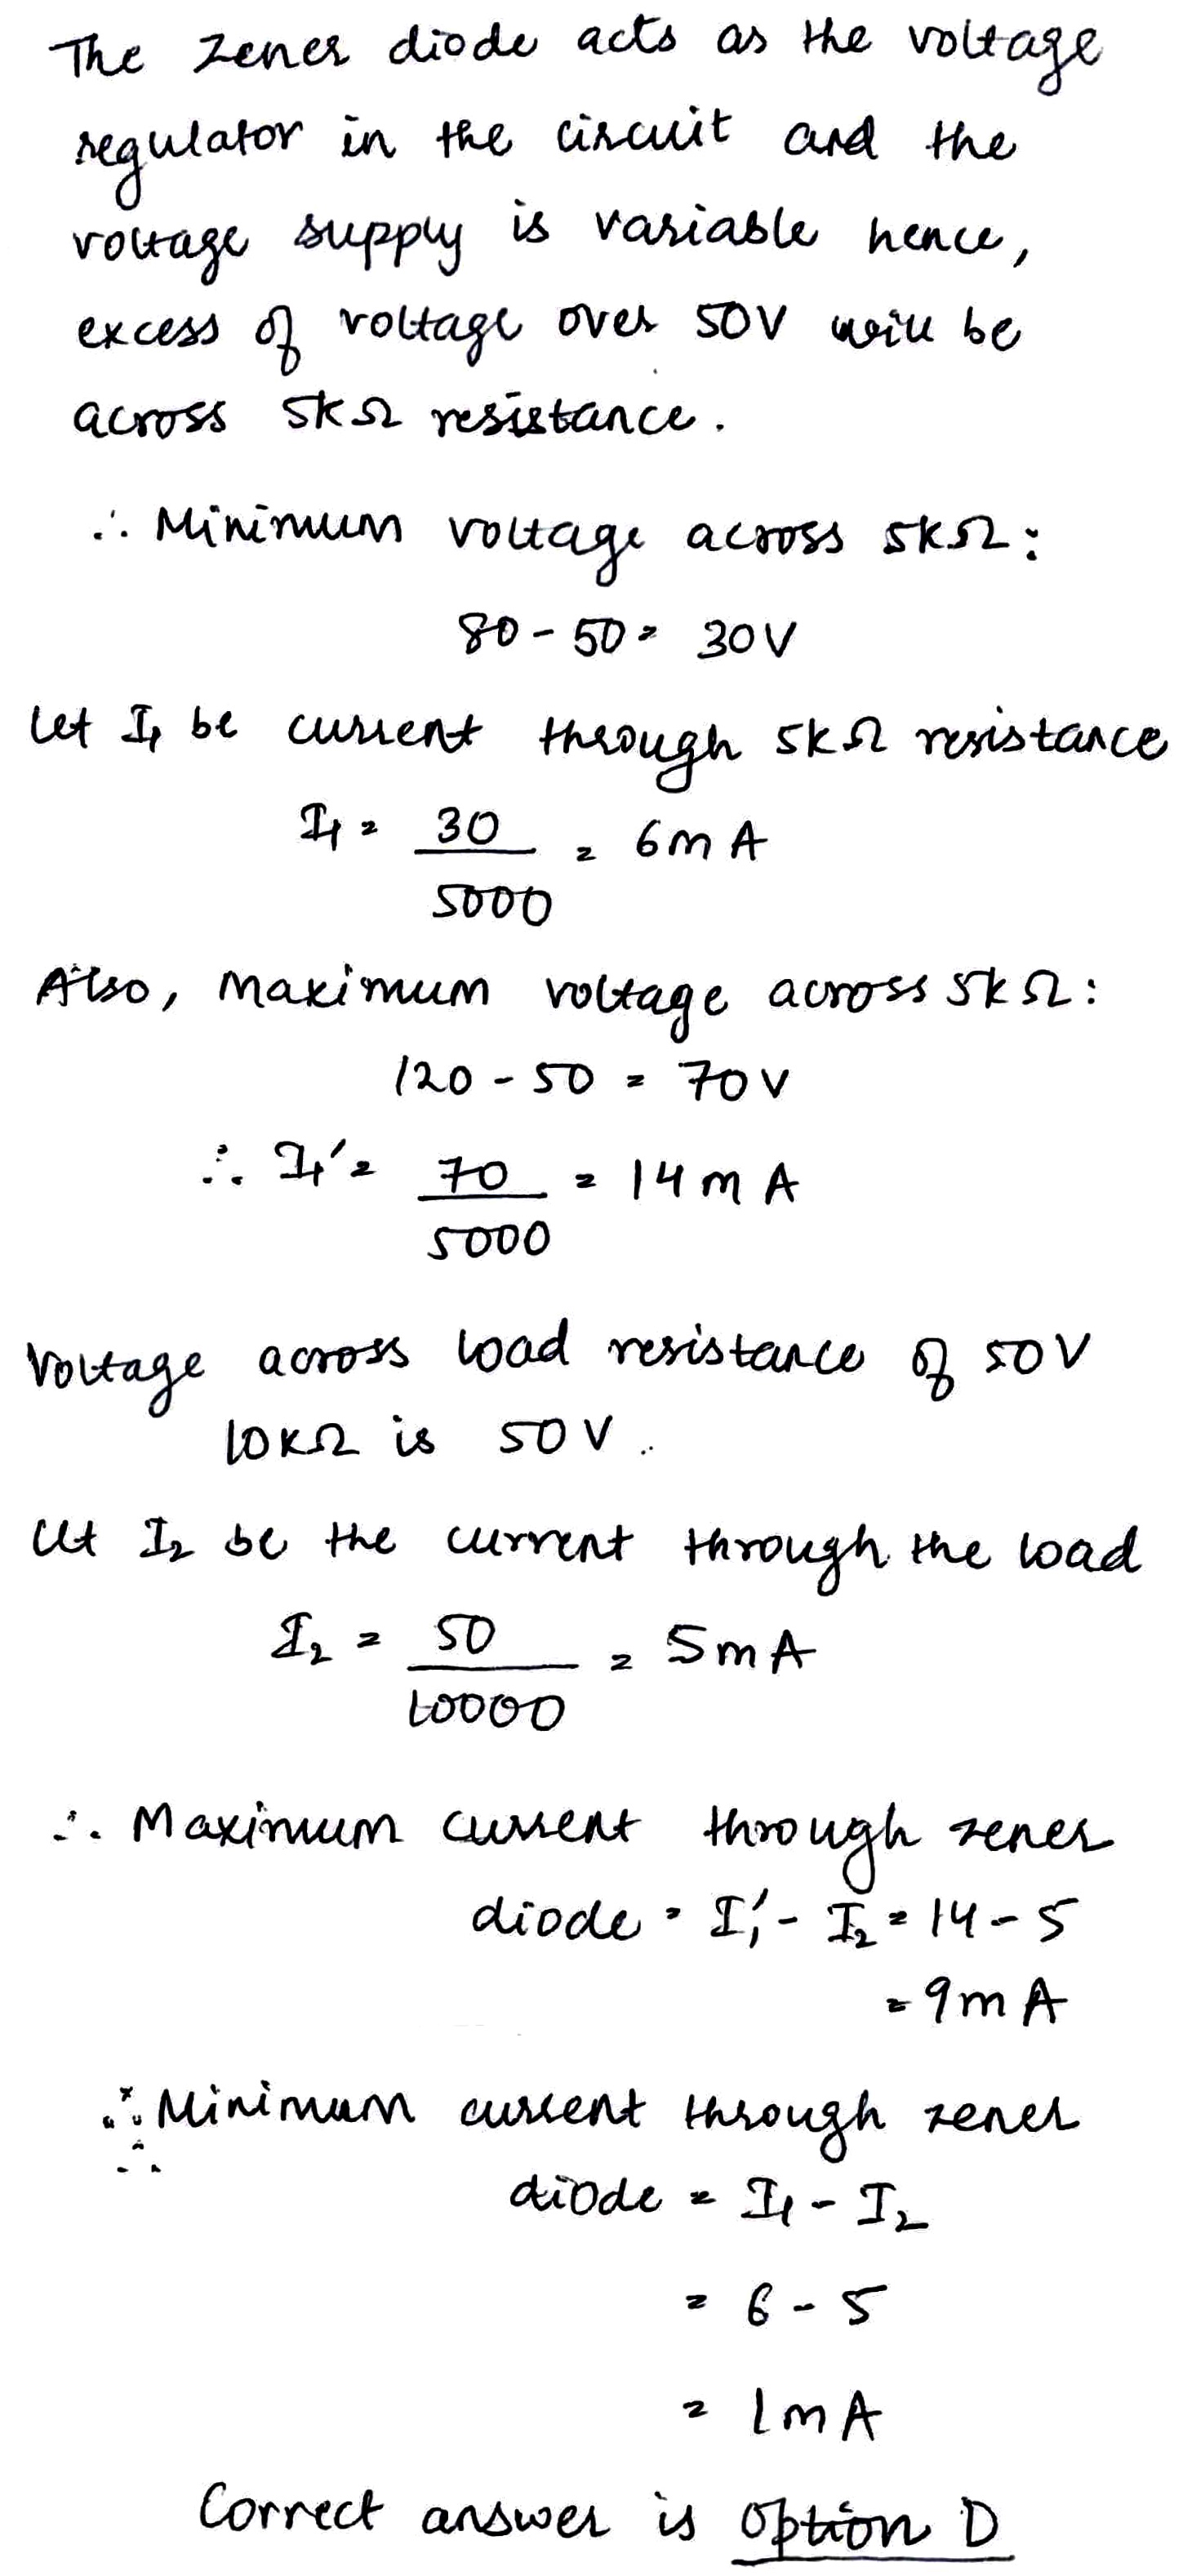 The Zener diode acts as the voltage
regulator in the circuit and the
voltage supply is variable hence,
excess of voltage over 50V will be
across 5kΩ resistance.
∴ Minimum voltage across 5kΩ:
80 - 50 = 30V
Let I₁ be current through 5kΩ resistance
I₁ = 30/5000 = 6mA
Also, Maximum voltage across 5kΩ:
120 - 50 = 70V
∴ I₁' = 70/5000 = 14mA
Voltage across load resistance of 50V
10kΩ is 50V.
Let I₂ be the current through the load
I₂ = 50/10000 = 5mA
∴ Maximum current through zener
diode = I₁' - I₂ = 14 - 5
= 9mA
∴ Minimum current through zener
diode = I₁ - I₂
= 6 - 5
= 1mA
Correct answer is Option D